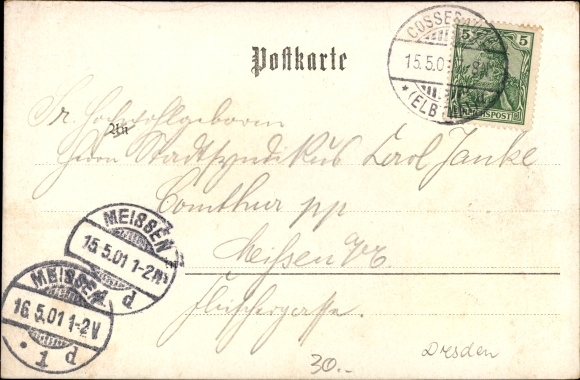 COSSEBAUDE
15.5.01
* (ELBTHAL)
5 5
REICHSPOST
Postkarte
Sr. Hochwohlgeboren
An
Herrn Stadtsyndikus Carol Janke
Comthur pp
Meissen
Fleischergasse.
MEISSEN
15.5.01 1-2N
d
MEISSEN
16.5.01 1-2V
* 1 d
30.-
Dresden